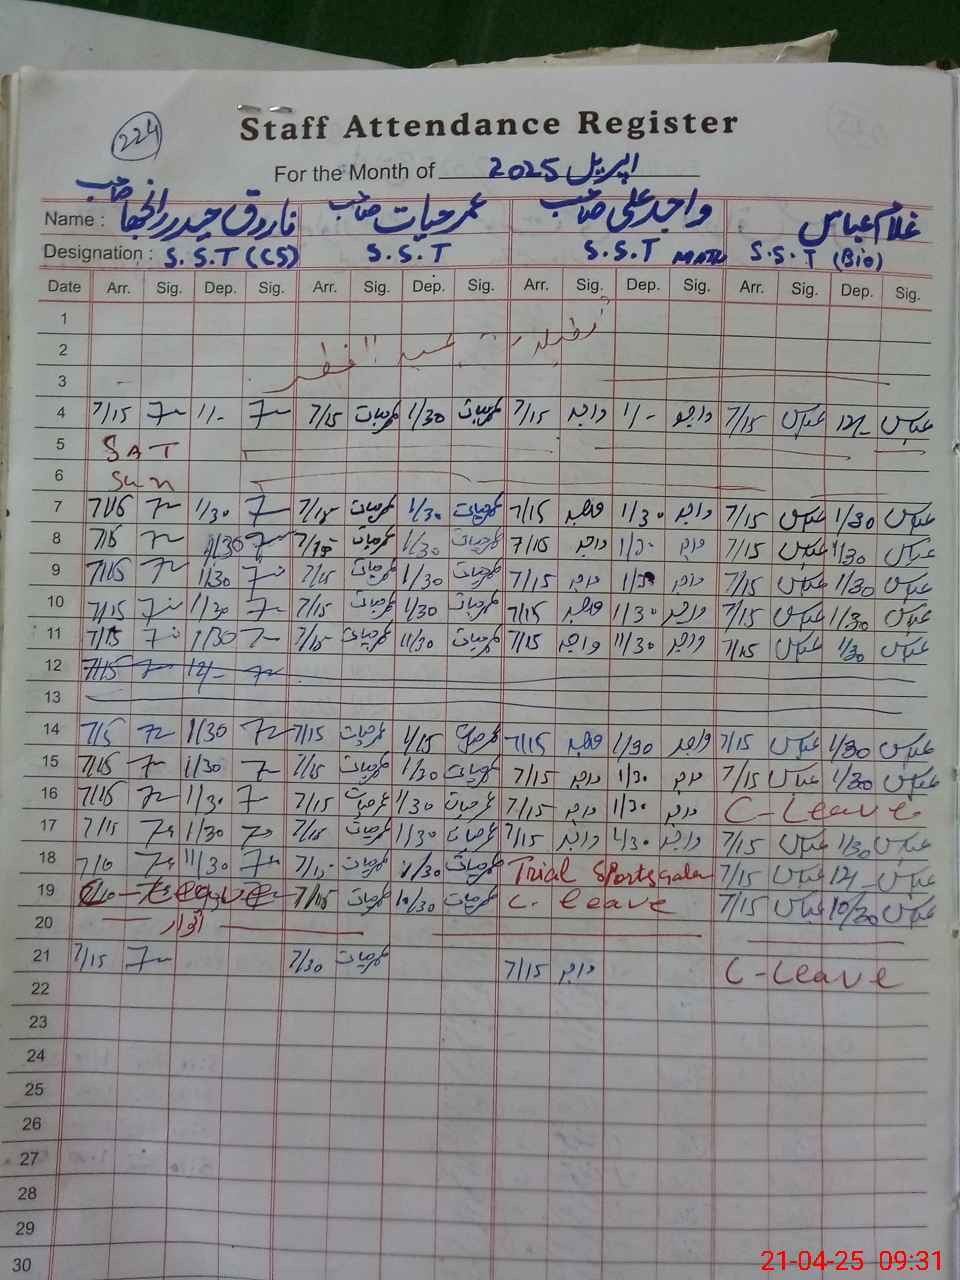 224
Staff Attendance Register
For the Month of اپریل 2025
Name : فاروق حیدر رانجھا صاحب عمر حیات صاحب واجد علی صاحب غلام عباس
Designation : S.S.T (CS) S.S.T S.S.T MATH S.S.T (Bio)
Date Arr. Sig. Dep. Sig. Arr. Sig. Dep. Sig. Arr. Sig. Dep. Sig. Arr. Sig. Dep. Sig.
1
2 تعطیلات عید الفطر
3
4 7/15 1/- 7/15 عمرحیات 1/30 عمرحیات 7/15 واجد 1/- واجد 7/15 عباس 12/- عباس
5 SAT
6 Sun
7 7/15 1/30 7/15 عمرحیات 1/30 عمرحیات 7/15 واجد 1/30 واجد 7/15 عباس 1/30 عباس
8 7/15 1/30 7/15 عمرحیات 1/30 عمرحیات 7/15 واجد 1/30 واجد 7/15 عباس 1/30 عباس
9 7/15 1/30 7/15 عمرحیات 1/30 عمرحیات 7/15 واجد 1/30 واجد 7/15 عباس 1/30 عباس
10 7/15 1/30 7/15 عمرحیات 1/30 عمرحیات 7/15 واجد 1/30 واجد 7/15 عباس 1/30 عباس
11 7/15 1/30 7/15 عمرحیات 11/30 عمرحیات 7/15 واجد 11/30 واجد 7/15 عباس 1/30 عباس
12 7/15 12/-
13
14 7/15 1/30 7/15 عمرحیات 1/15 عمرحیات 7/15 واجد 1/30 واجد 7/15 عباس 1/30 عباس
15 7/15 1/30 7/15 عمرحیات 1/30 عمرحیات 7/15 واجد 1/30 واجد 7/15 عباس 1/30 عباس
16 7/15 1/30 7/15 عمرحیات 1/30 عمرحیات 7/15 واجد 1/30 واجد C-Leave
17 7/15 1/30 7/15 عمرحیات 1/30 عمرحیات 7/15 واجد 1/30 واجد 7/15 عباس 1/30 عباس
18 7/10 11/30 7/15 عمرحیات 1/30 عمرحیات Trial Sportsgala 7/15 عباس 12/- عباس
19 Leave 7/15 عمرحیات 10/30 عمرحیات C. leave 7/15 عباس 10/30 عباس
20 اتوار
21 7/15 7/30 عمرحیات 7/15 واجد C-Leave
22
23
24
25
26
27
28
29
30
21-04-25 09:31